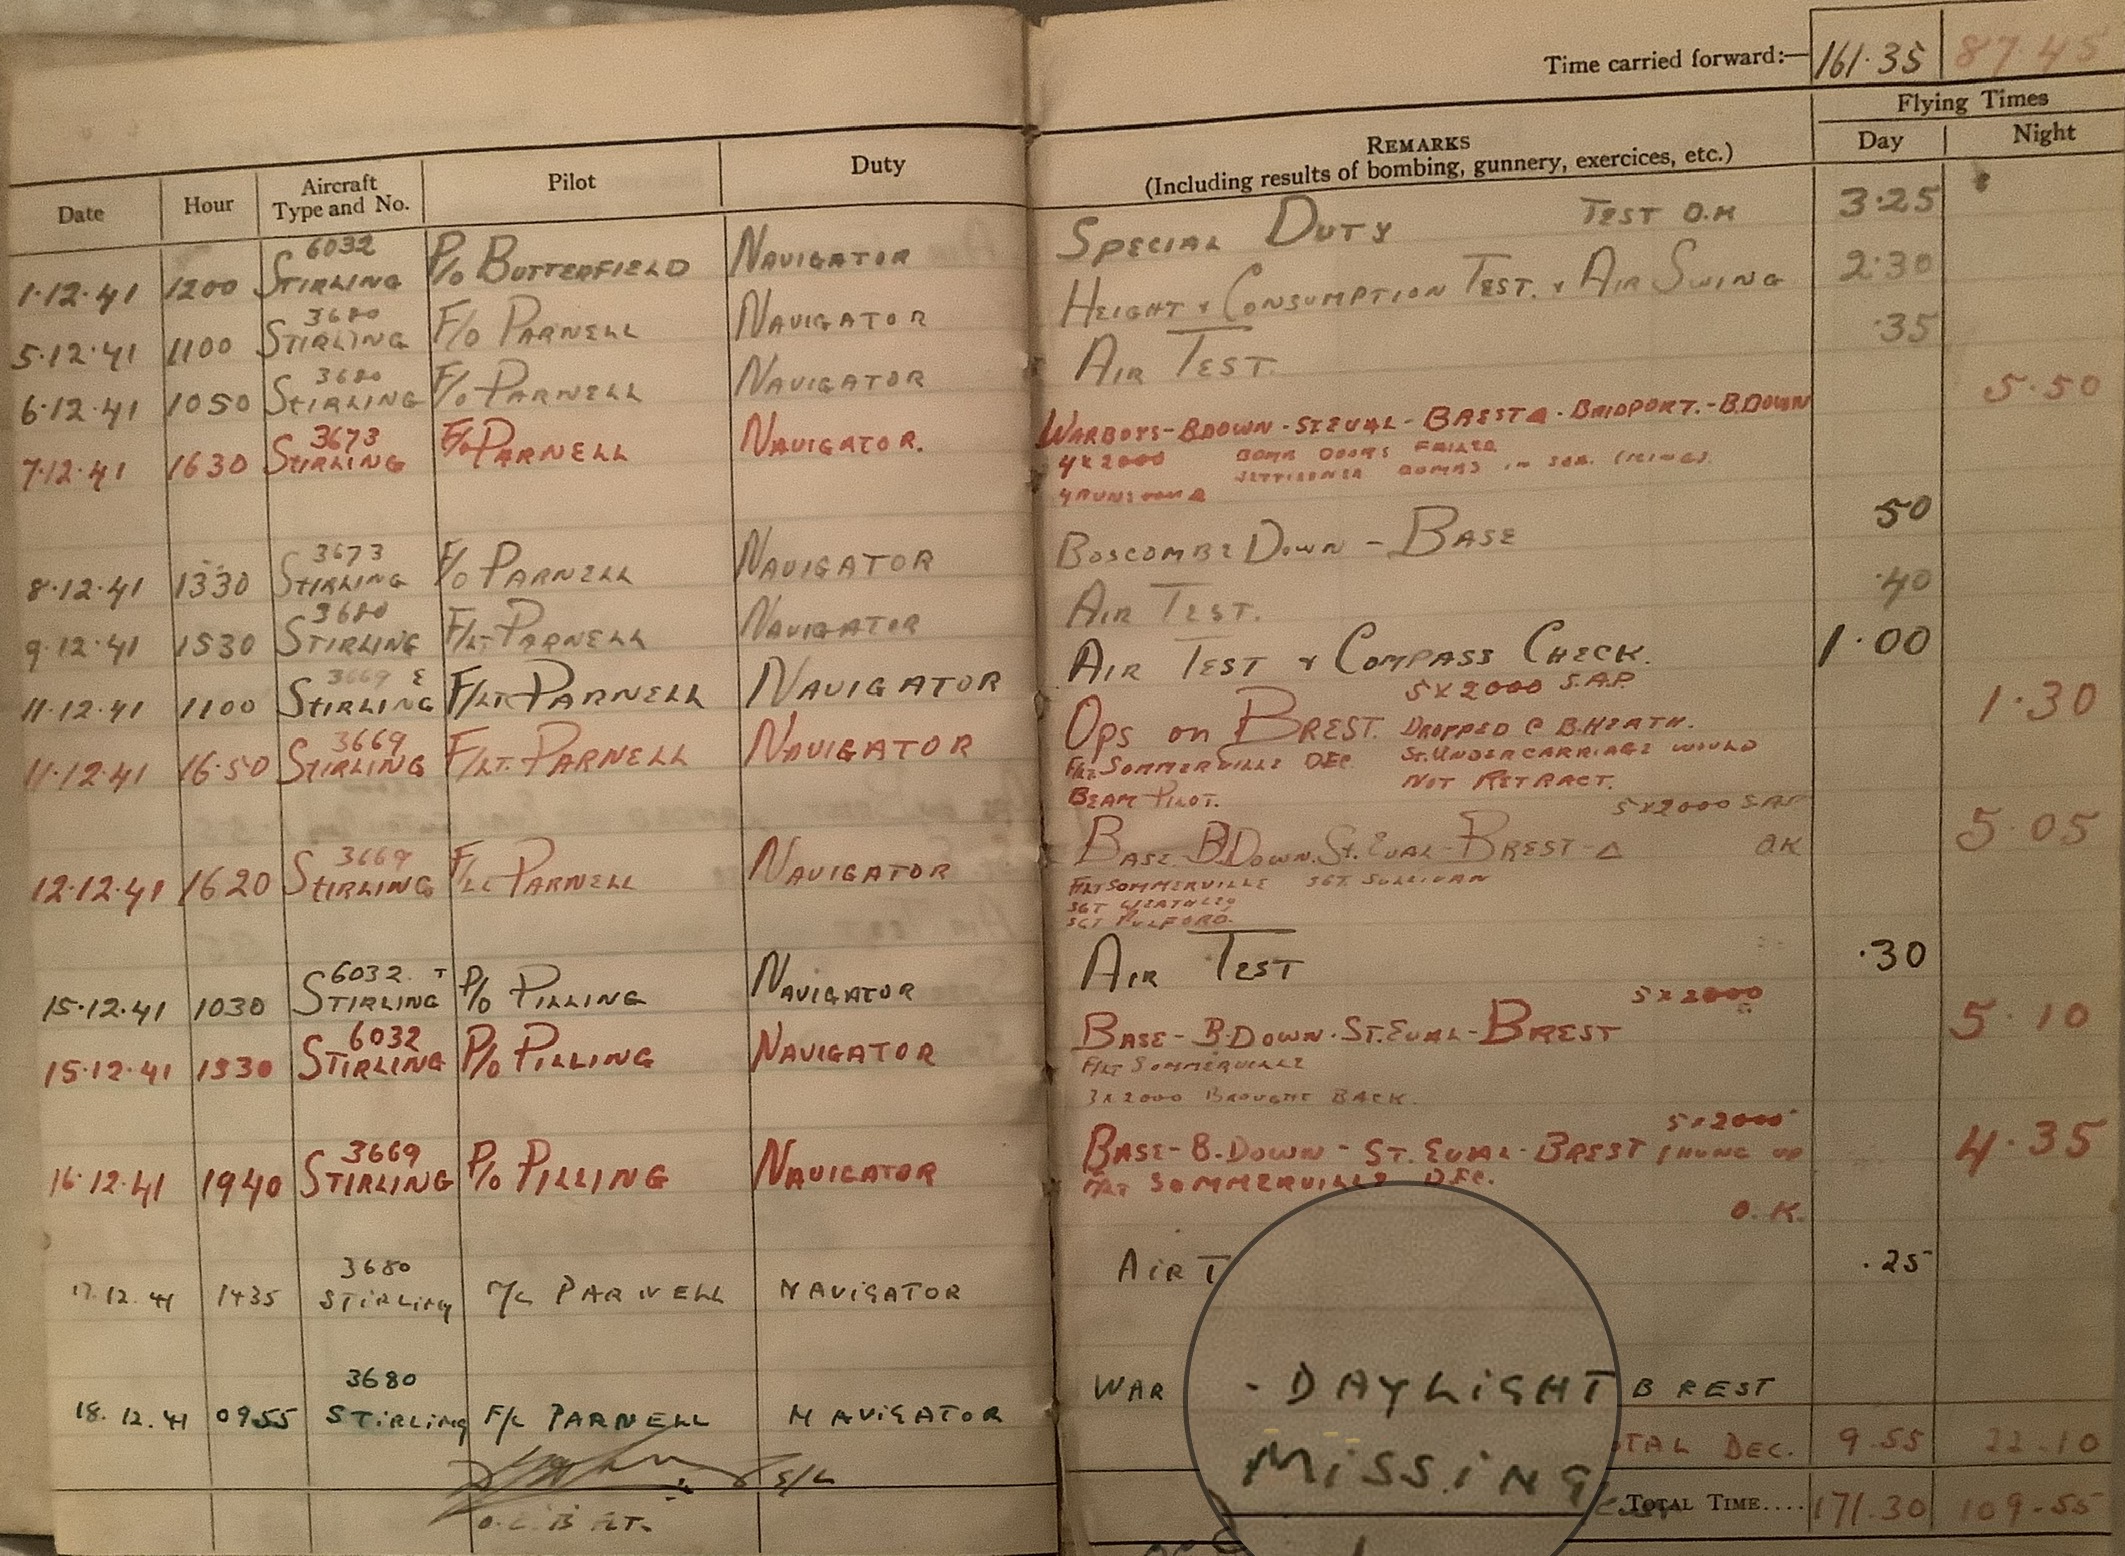 Time carried forward:— 161.35 87.45
Flying Times
Date Hour Aircraft Type and No. Pilot Duty REMARKS (Including results of bombing, gunnery, exercices, etc.) Day Night
1.12.41 1200 STIRLING 6032 P/O BUTTERFIELD NAVIGATOR SPECIAL DUTY TEST O.K 3.25
5.12.41 1100 STIRLING 3680 F/O PARNELL NAVIGATOR HEIGHT & CONSUMPTION TEST. & AIR SWING 2.30
6.12.41 1050 STIRLING 3680 F/O PARNELL NAVIGATOR AIR TEST. .35
7.12.41 1630 STIRLING 3673 F/O PARNELL NAVIGATOR. WARBOYS-B.DOWN-ST.EVAL-BREST-BRIDPORT.-B.DOWN 5.50
4x2000 BOMB DOORS FAILED
JETTISONED BOMBS IN SEA
8.12.41 1330 STIRLING 3673 F/O PARNELL NAVIGATOR BOSCOMBE DOWN - BASE 50
9.12.41 1530 STIRLING 3680 F/LT. PARNELL NAVIGATOR AIR TEST. .40
11.12.41 1100 STIRLING 3669 E F/LT. PARNELL NAVIGATOR AIR TEST & COMPASS CHECK. 1.00
11.12.41 1650 STIRLING 3669 F/LT. PARNELL NAVIGATOR OPS on BREST. 5x2000 S.A.P. 1.30
DROPPED @ B.HEATH.
F/LT SOMMERVILLE DFC ST. UNDERCARRIAGE WOULD
BEAM PILOT. NOT RETRACT.
12.12.41 1620 STIRLING 3669 PARNELL NAVIGATOR BASE-B.DOWN.ST.EVAL-BREST-△ 5x2000 S.A.P OK 5.05
F/LT SOMMERVILLE SGT. SULLIVAN
SGT
SGT PULFORD.
15.12.41 1030 STIRLING 6032 T P/O PILLING NAVIGATOR AIR TEST .30
15.12.41 1330 STIRLING 6032 P/O PILLING NAVIGATOR BASE-B.DOWN.ST.EVAL-BREST 5x2000 5.10
F/LT SOMMERVILLE
3x2000 BROUGHT BACK.
16.12.41 1940 STIRLING 3669 P/O PILLING NAVIGATOR BASE-B.DOWN-ST.EVAL-BREST 5x2000 1 HUNG UP 4.35
F/LT SOMMERVILLE DFC.
O.K.
17.12.41 1435 STIRLING 3680 F/L PARNELL NAVIGATOR AIR T .25
18.12.41 0955 STIRLING 3680 F/L PARNELL NAVIGATOR WAR - DAYLIGHT BREST
MISSING
TAL DEC. 9.55 22.10
S/L
O.C. B FLT.
TOTAL TIME.... 171.30 109.55